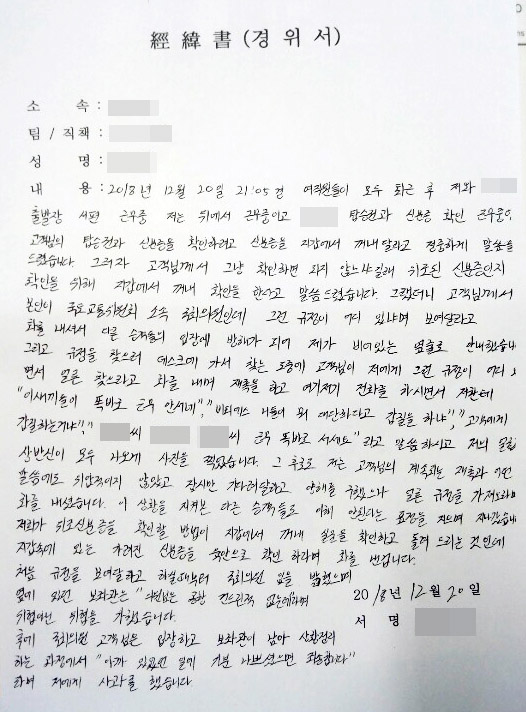 經緯書 (경위서)
소 속 :
팀 / 직책 :
성 명 :
내 용 : 2018년 12월 20일 21:05경 여직원들이 모두 퇴근 후 저와
출발장 서편 근무중 저는 뒤에서 근무중이고 탑승권과 신분증 확인 근무중,
고객님의 탑승권과 신분증을 확인하려고 신분증을 지갑에서 꺼내달라고 정중하게 말씀을
드렸습니다. 그러자 고객님께서 그냥 확인하면 되지 않느냐길래 위조된 신분증인지
확인을 위해 지갑에서 꺼내 확인을 한다고 말씀드렸습니다. 그랬더니 고객님께서
본인이 국토교통위원회 소속 국회의원인데 그런 규정이 어디 있냐며 보여달라고
화를 내셔서 다른 승객들의 입장에 방해가 되어 제가 비어있는 옆으로 안내했습니
그리고 규정을 찾으러 데스크에 가서 찾는 도중에 고객님이 저에게 그런 규정이 어디
면서 얼른 찾으라고 화를 내며 재촉을 하고 여기저기 전화를 하시면서 저한테
"이새끼들이 똑바로 근무 안서네", "너희가 뭐 대단하다고 갑질을 하냐", "고객에게
갑질하는거냐", " 씨 씨 근무 똑바로 서세요" 라고 말씀하시고 저의 얼굴
상반신이 모두 나오게 사진을 찍었습니다. 그 후로도 저는 고객님의 계속되는 재촉과
말씀에도 잠시만 기다려달라고 양해를 구했으나 얼른 규정을 가져오라며
화를 내셨습니다. 이 상황을 지켜본 다른 승객들도 이해 안된다는 표정을 지으며 지나갔습니
저희가 위조신분증을 확인할 방법이 지갑에서 꺼내 확인하고 돌려 드리는 것인데
지갑속에 있는 가려진 신분증을 육안으로 확인 하라며 화를 낸겁니다.
처음 규정을 보여달라고 하실때부터 국회의원 임을 밝혔으며
옆에 있던 보좌관은 " 공항 건드린적 없는데라며
위협아닌 위협을 가했습니다.
후에 국회의원 고객님은 입장하고 보좌관이 남아 상황정리
하는 과정에서 "아까 있었던 일에 기분 나쁘셨으면 죄송합니다"
라며 저에게 사과를 했습니다
2018년 12월 20일
서 명